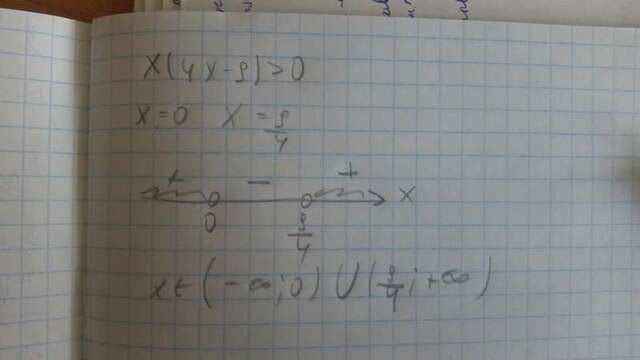 x(4x-9)>0
x=0 x=9/4
+ - +
0 9/4 x
x∈(-∞;0)∪(9/4;+∞)